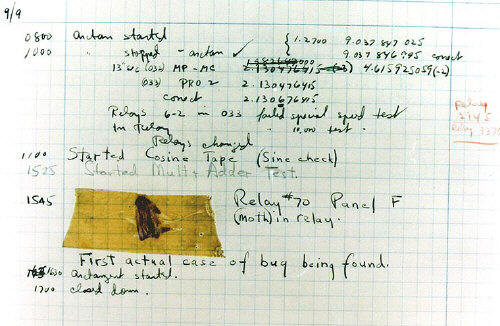 9/9
0800 antan started
1000 " stopped - antan ✓ { 1.2700 9.037 847 025
9.037 846 995 correct
13" uc (032) MP - MC 2.130476415 (-3) 4.615925059(-2)
(033) PRO 2 2.130476415
correct 2.130676415
Relays 6-2 in 033 failed special speed test
in relay " 10,000 test .
Relay
2145
Relay 3370
Relays changed
1100 Started Cosine Tape (Sine check)
1525 Started Mult + Adder Test.
1545 Relay #70 Panel F
(moth) in relay.
First actual case of bug being found.
1630 antangent started.
1700 closed down.